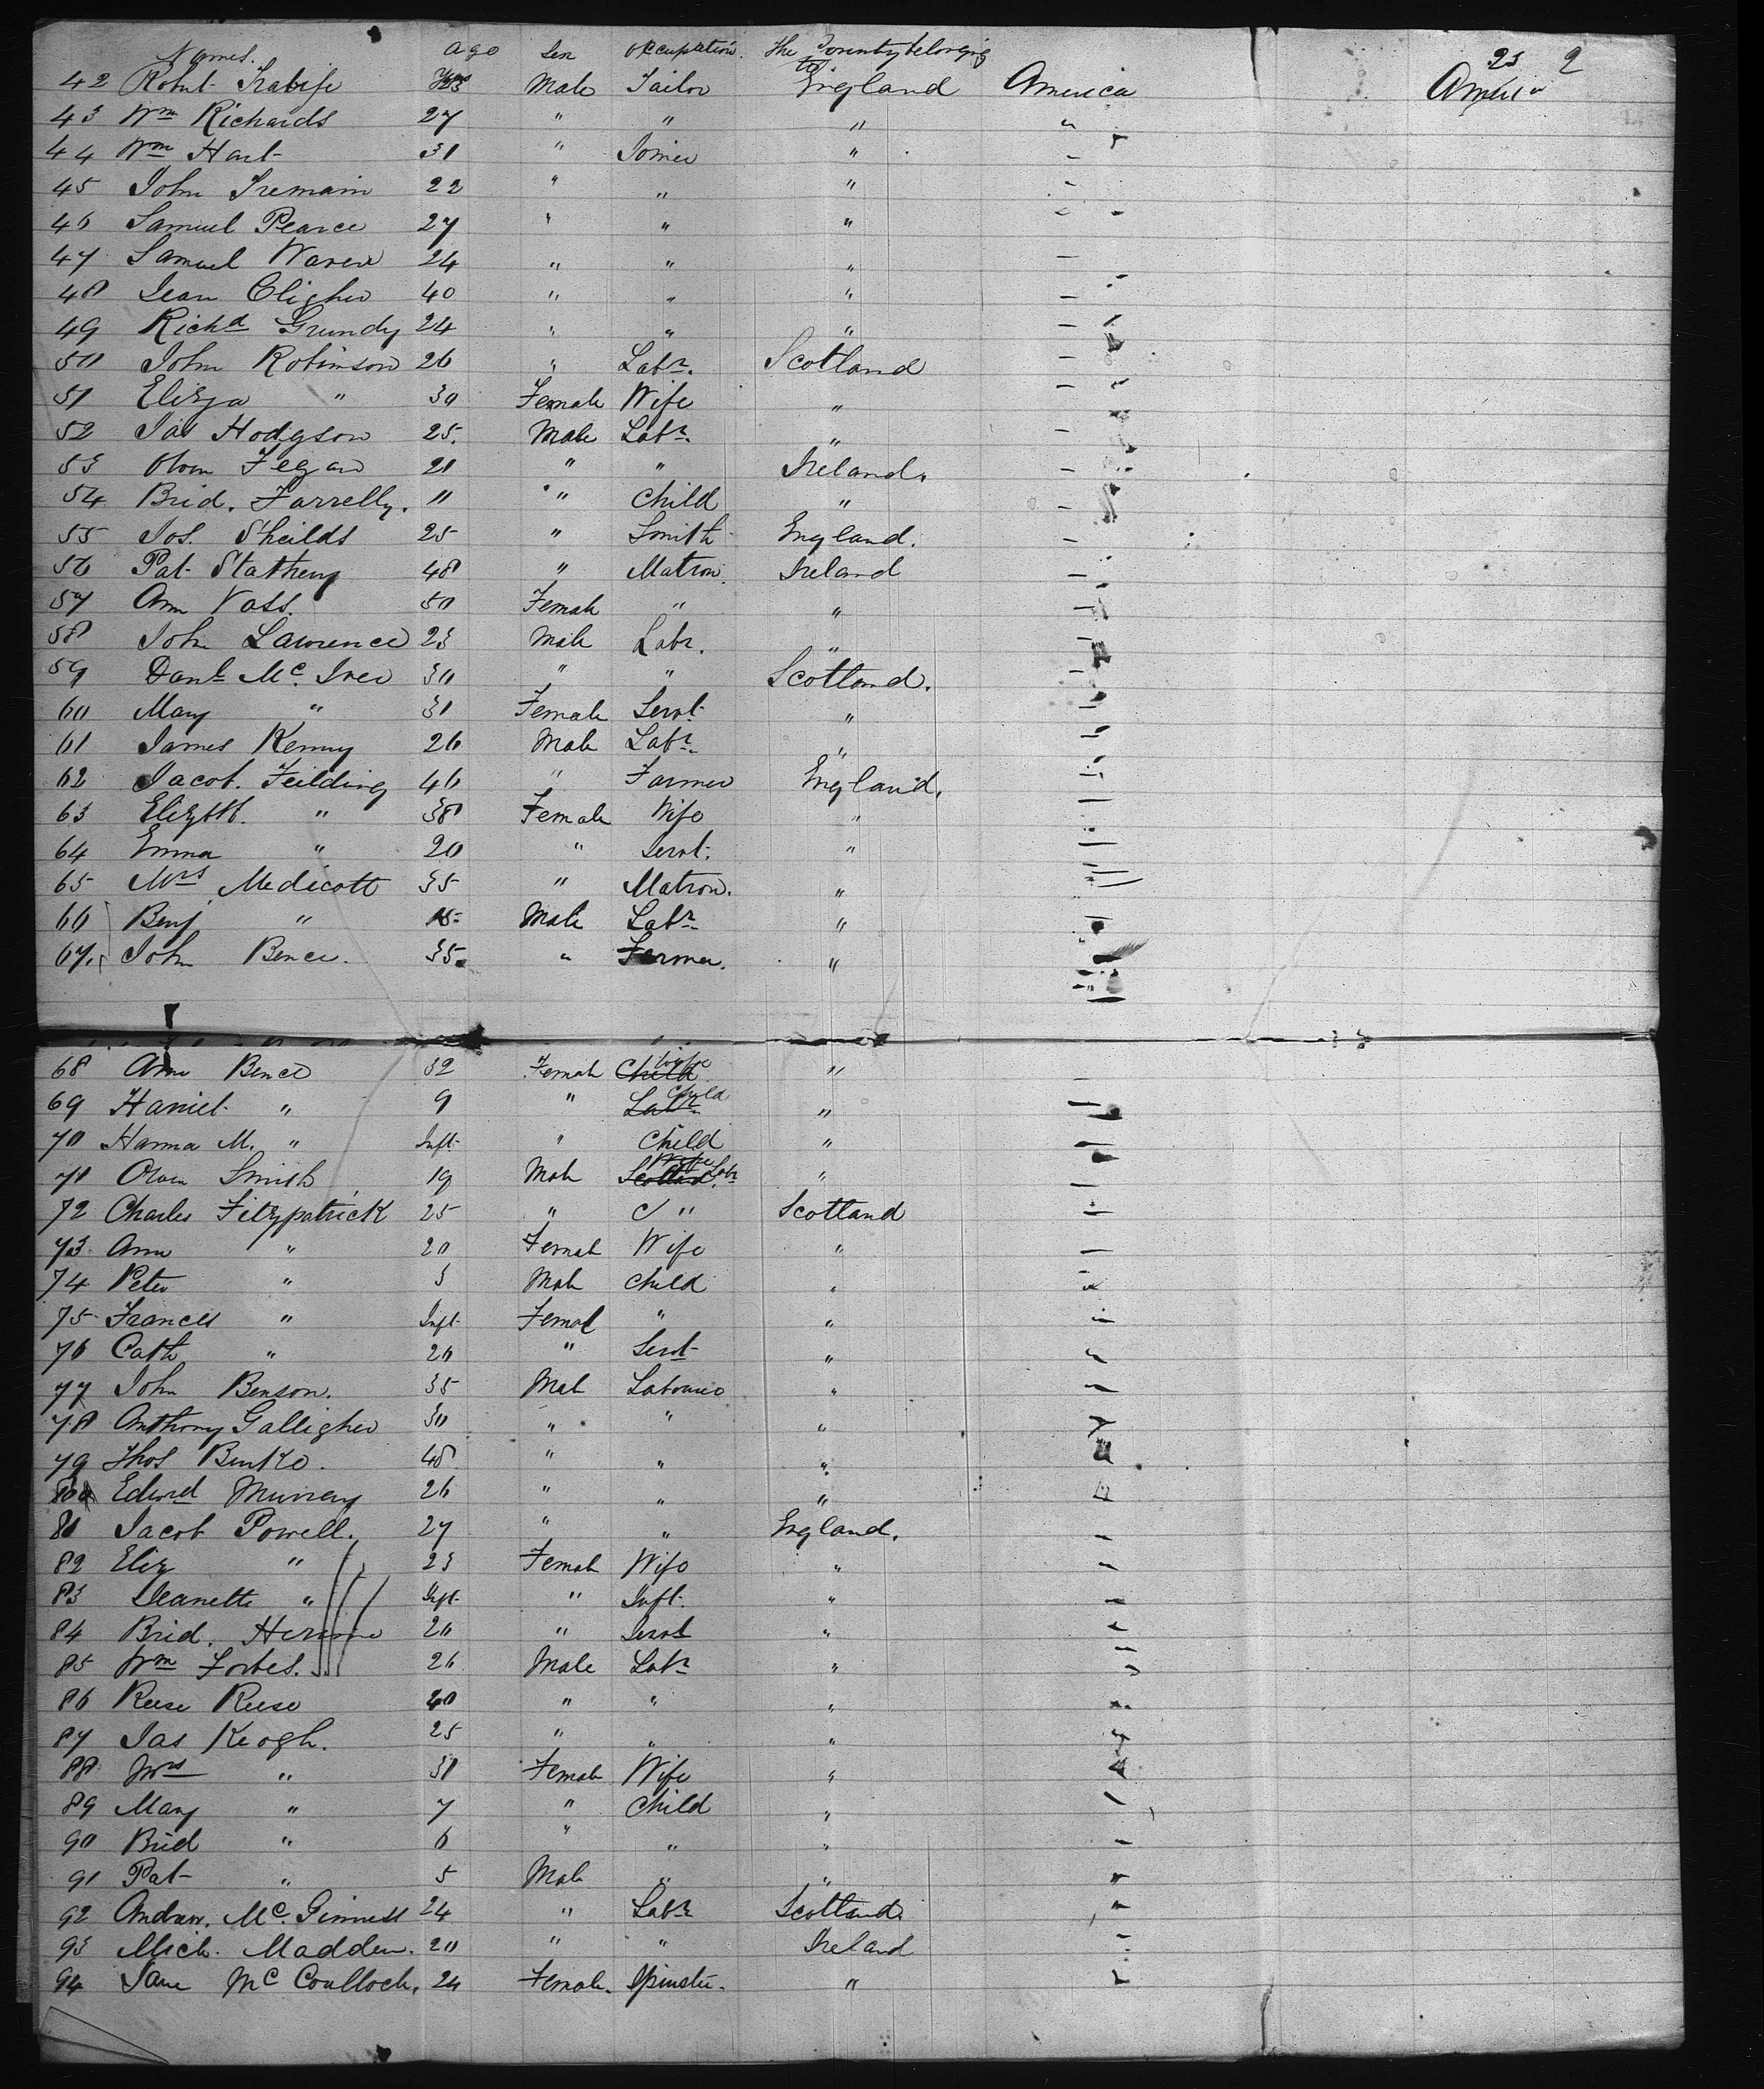 Names. Age Sex Occupation. The Country belonging to 23 2
42 Male Tailor England America America
43 Wm Richards 27 " " " "
44 Wm Hart 31 " Joiner "
45 John Tremain 22 " " "
46 Samuel Pearce 27 " " "
47 Samuel Waren 24 " " "
48 40 " " "
49 Richd Grundy 24 " " "
50 John Robinson 26 " Labr. Scotland
51 Eliza " 30 Female Wife "
52 Jas Hodgson 25. Male Labr. "
53 Owen Fegan 21 " " Ireland.
54 Brid. Farrelly. 11 " Child "
55 Jos. Sheilds 25 " Smith England.
56 Pat 48 " Matron. Ireland
57 Ann Vass. 50 Female " "
58 John Lawrence 23 Male Labr. "
59 Danl. Mc. Iver 30 " " Scotland.
60 Mary " 31 Female Servt. "
61 James Kenny 26 Male Labr. "
62 Jacob. Feilding 46 " Farmer England.
63 Elizbth. " 38 Female Wife "
64 Emma " 20 " Servt. "
65 Mrs Medicott 35 " Matron. "
66 Benj " 15 Male Labr. "
67. John Bence. 35. " Farmer. "
68 Ann Bence 32 Female Child Wife "
69 " 9 " Labr. Child "
70 Hanna M. " Inft. " Child "
71 Owen Smith 19 Male Wife Labr "
72 Charles Fitzpatrick 25 " " Scotland
73. Ann " 20 Female Wife "
74 Peter " 3 Male Child "
75 Frances " Inft. Femal " "
76 Cath " 20 " Servt "
77 John Benson. 35 Mal Labourer "
78 Anthony Galligher 30 " " "
79 Thos 48 " " "
80 Edwrd Murrey 26 " " "
81 Jacob Powell. 27 " " England.
82 Eliz " 23 Female Wife "
83 Jeanette " Inft. " Inft. "
84 Brid. 20 " Servt "
85 Wm Forbes. 26 Male Labr "
86 Reese Reese 40 " " "
87 Jas Keogh. 25 " " "
88 Mrs " 31 Female Wife "
89 Mary " 7 " Child "
90 Brid " 6 " " "
91 Pat " 5 Male " "
92 Andrew. Mc. Ginness 24 " Labr Scotland.
93 Mich. Madden. 20 " " Ireland
94 Jane Mc Coulloch. 24 Female. Spinster. "